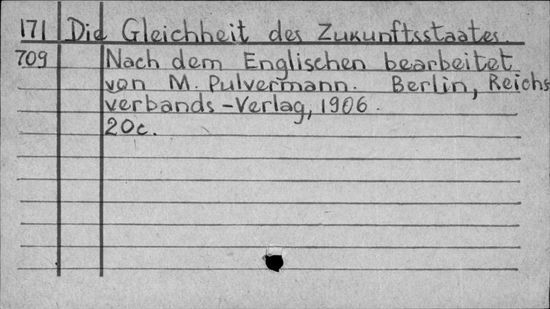 171 Die Gleichheit des Zukunftsstaates.
709 Nach dem Englischen bearbeitet
von M. Pulvermann. Berlin, Reichs
verbands-Verlag, 1906.
20c.